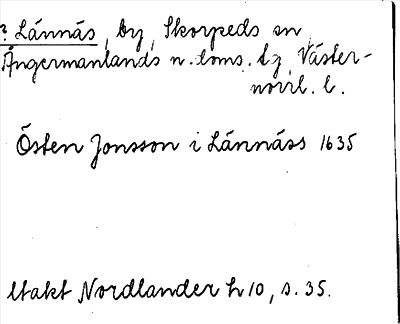 ? Lännäs, by, Skorpeds sn
Ångermanlands n. doms. tg, Väster-
norrl. l.
Östen Jonsson i Lännäss 1635
Utakt Nordlander h 10, s. 35.